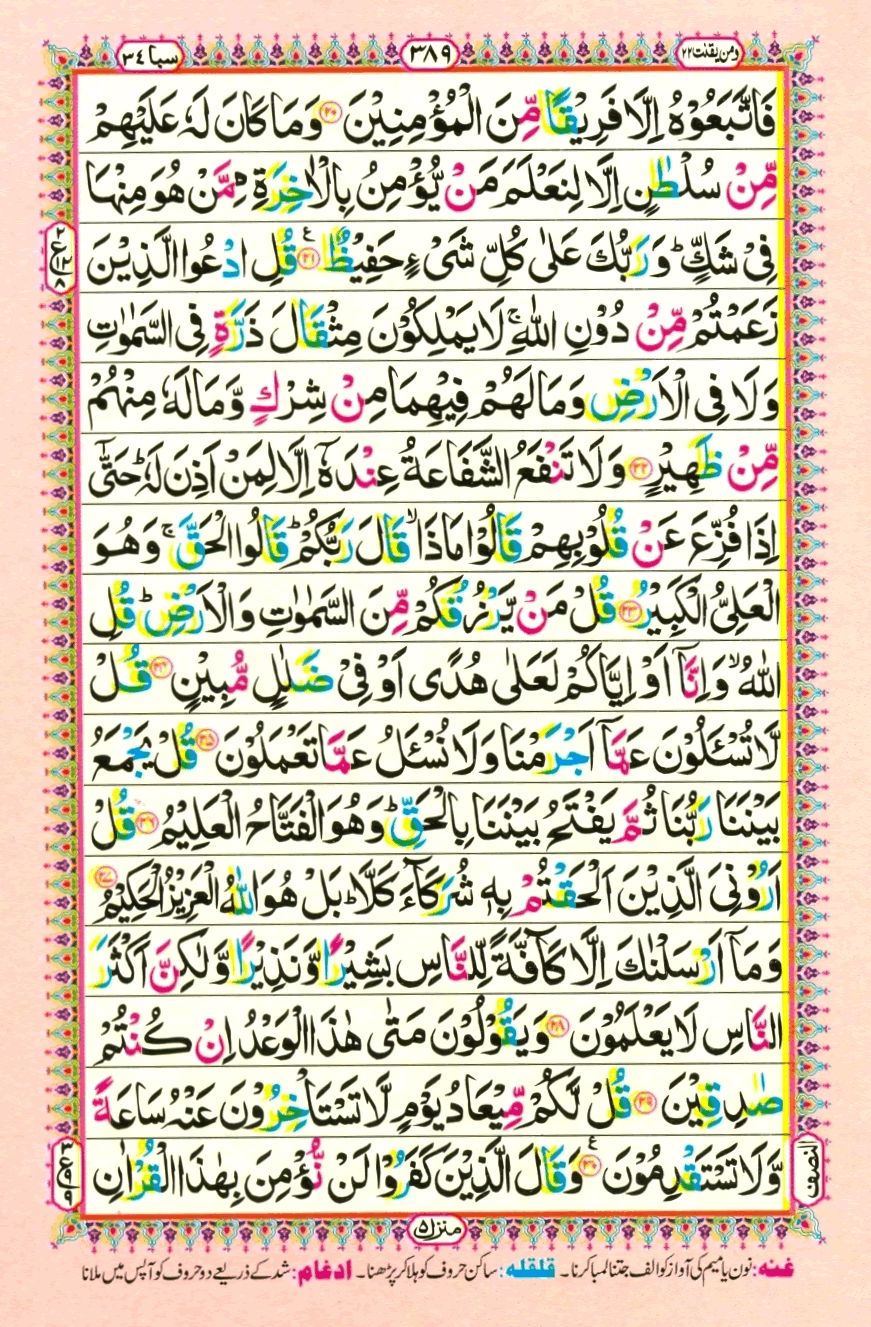 ومن يقنت ٢٢
٣٨٩
سبا ٣٤
فَاتَّبَعُوْهُ اِلَّا فَرِيْقًا مِّنَ الْمُؤْمِنِيْنَ ﴿۲۰﴾ وَمَا كَانَ لَهٗ عَلَيْهِمْ
مِّنْ سُلْطٰنٍ اِلَّا لِنَعْلَمَ مَنْ يُّؤْمِنُ بِالْاٰخِرَةِ مِمَّنْ هُوَ مِنْهَا
فِيْ شَكٍّ ؕ وَرَبُّكَ عَلٰى كُلِّ شَيْءٍ حَفِيْظٌ ﴿۲۱﴾ قُلِ ادْعُوا الَّذِيْنَ
زَعَمْتُمْ مِّنْ دُوْنِ اللّٰهِ ۚ لَا يَمْلِكُوْنَ مِثْقَالَ ذَرَّةٍ فِي السَّمٰوٰتِ
وَلَا فِي الْاَرْضِ وَمَا لَهُمْ فِيْهِمَا مِنْ شِرْكٍ وَّمَا لَهٗ مِنْهُمْ
مِّنْ ظَهِيْرٍ ﴿۲۲﴾ وَلَا تَنْفَعُ الشَّفَاعَةُ عِنْدَهٗۤ اِلَّا لِمَنْ اَذِنَ لَهٗ ؕ حَتّٰۤى
اِذَا فُزِّعَ عَنْ قُلُوْبِهِمْ قَالُوْا مَاذَا ۙ قَالَ رَبُّكُمْ ؕ قَالُوا الْحَقَّ ۚ وَهُوَ
الْعَلِيُّ الْكَبِيْرُ ﴿۲۳﴾ قُلْ مَنْ يَّرْزُقُكُمْ مِّنَ السَّمٰوٰتِ وَالْاَرْضِ ؕ قُلِ
اللّٰهُ ۙ وَاِنَّاۤ اَوْ اِيَّاكُمْ لَعَلٰى هُدًى اَوْ فِيْ ضَلٰلٍ مُّبِيْنٍ ﴿۲۴﴾ قُلْ
لَّا تُسْـَٔلُوْنَ عَمَّاۤ اَجْرَمْنَا وَلَا نُسْـَٔلُ عَمَّا تَعْمَلُوْنَ ﴿۲۵﴾ قُلْ يَجْمَعُ
بَيْنَنَا رَبُّنَا ثُمَّ يَفْتَحُ بَيْنَنَا بِالْحَقِّ ؕ وَهُوَ الْفَتَّاحُ الْعَلِيْمُ ﴿۲۶﴾ قُلْ
اَرُوْنِيَ الَّذِيْنَ اَلْحَقْتُمْ بِهٖ شُرَكَآءَ كَلَّا ؕ بَلْ هُوَ اللّٰهُ الْعَزِيْزُ الْحَكِيْمُ ﴿۲۷﴾
وَمَاۤ اَرْسَلْنٰكَ اِلَّا كَآفَّةً لِّلنَّاسِ بَشِيْرًا وَّنَذِيْرًا وَّلٰكِنَّ اَكْثَرَ
النَّاسِ لَا يَعْلَمُوْنَ ﴿۲۸﴾ وَيَقُوْلُوْنَ مَتٰى هٰذَا الْوَعْدُ اِنْ كُنْتُمْ
صٰدِقِيْنَ ﴿۲۹﴾ قُلْ لَّكُمْ مِّيْعَادُ يَوْمٍ لَّا تَسْتَاْخِرُوْنَ عَنْهُ سَاعَةً
وَّلَا تَسْتَقْدِمُوْنَ ﴿۳۰﴾ وَقَالَ الَّذِيْنَ كَفَرُوْا لَنْ نُّؤْمِنَ بِهٰذَا الْقُرْاٰنِ
النصف
منزل ۵
غنه: نون یا میم کی آواز کو الف جتنا لمبا کرنا۔ قلقله: ساکن حروف کو ہلا کر پڑھنا۔ ادغام: شد کے ذریعے دو حروف کو آپس میں ملانا